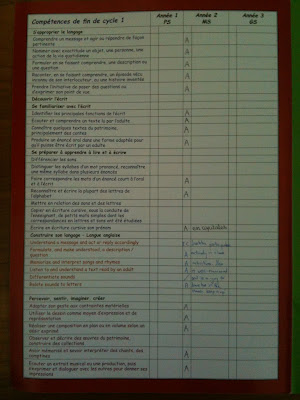 Compétences de fin de cycle 1
Année 1
PS
Année 2
MS
Année 3
GS
S'approprier le langage
Comprendre un message et agir ou répondre de façon
pertinente
A
Nommer avec exactitude un objet, une personne, une
action de la vie quotidienne
A
Formuler en se faisant comprendre, une description ou
une question
A
Raconter, en se faisant comprendre, un épisode vécu
inconnu de son interlocuteur, ou une histoire inventée
A
Prendre l'initiative de poser des questions ou
d'exprimer son point de vue
A
Découvrir l'écrit
Se familiariser avec l'écrit
Identifier les principales fonctions de l'écrit
A
Ecouter et comprendre un texte lu par l'adulte
A
Connaître quelques textes du patrimoine,
principalement des contes
A
Produire un énoncé oral dans une forme adaptée pour
qu'il puisse être écrit par un adulte
A
Se préparer à apprendre à lire et à écrire
Différencier les sons
Distinguer les syllabes d'un mot prononcé, reconnaître une
même syllabe dans plusieurs énoncés
A
Faire correspondre les mots d'un énoncé court à l'oral
et à l'écrit
A
Reconnaître et écrire la plupart des lettres de
l'alphabet
A
Mettre en relation des sons et des lettres
Copier en écriture cursive, sous la conduite de
l'enseignant, de petits mots simples dont les
correspondances en lettres et sons ont été étudiées
Ecrire en écriture cursive son prénom
A
en capitales
Construire son langage - Langue anglaise
Understand a message and act or reply accordingly
Formulate, and make understood, a description /
question
Memorise and interpret songs and rhymes
A
Listen to and understand a text read by an adult
A
Differentiate sounds
A
Relate sounds to letters
A
Percevoir, sentir, imaginer, créer
Adapter son geste aux contraintes matérielles
A
Utiliser le dessin comme moyen d'expression et de
représentation
A
Réaliser une composition en plan ou en volume selon un
désir exprimé
A
Observer et décrire des œuvres du patrimoine,
construire des collections
Avoir mémorisé et savoir interpréter des chants, des
comptines
A
Ecouter un extrait musical ou une production, puis
s'exprimer et dialoguer avec les autres pour donner ses
impressions
A